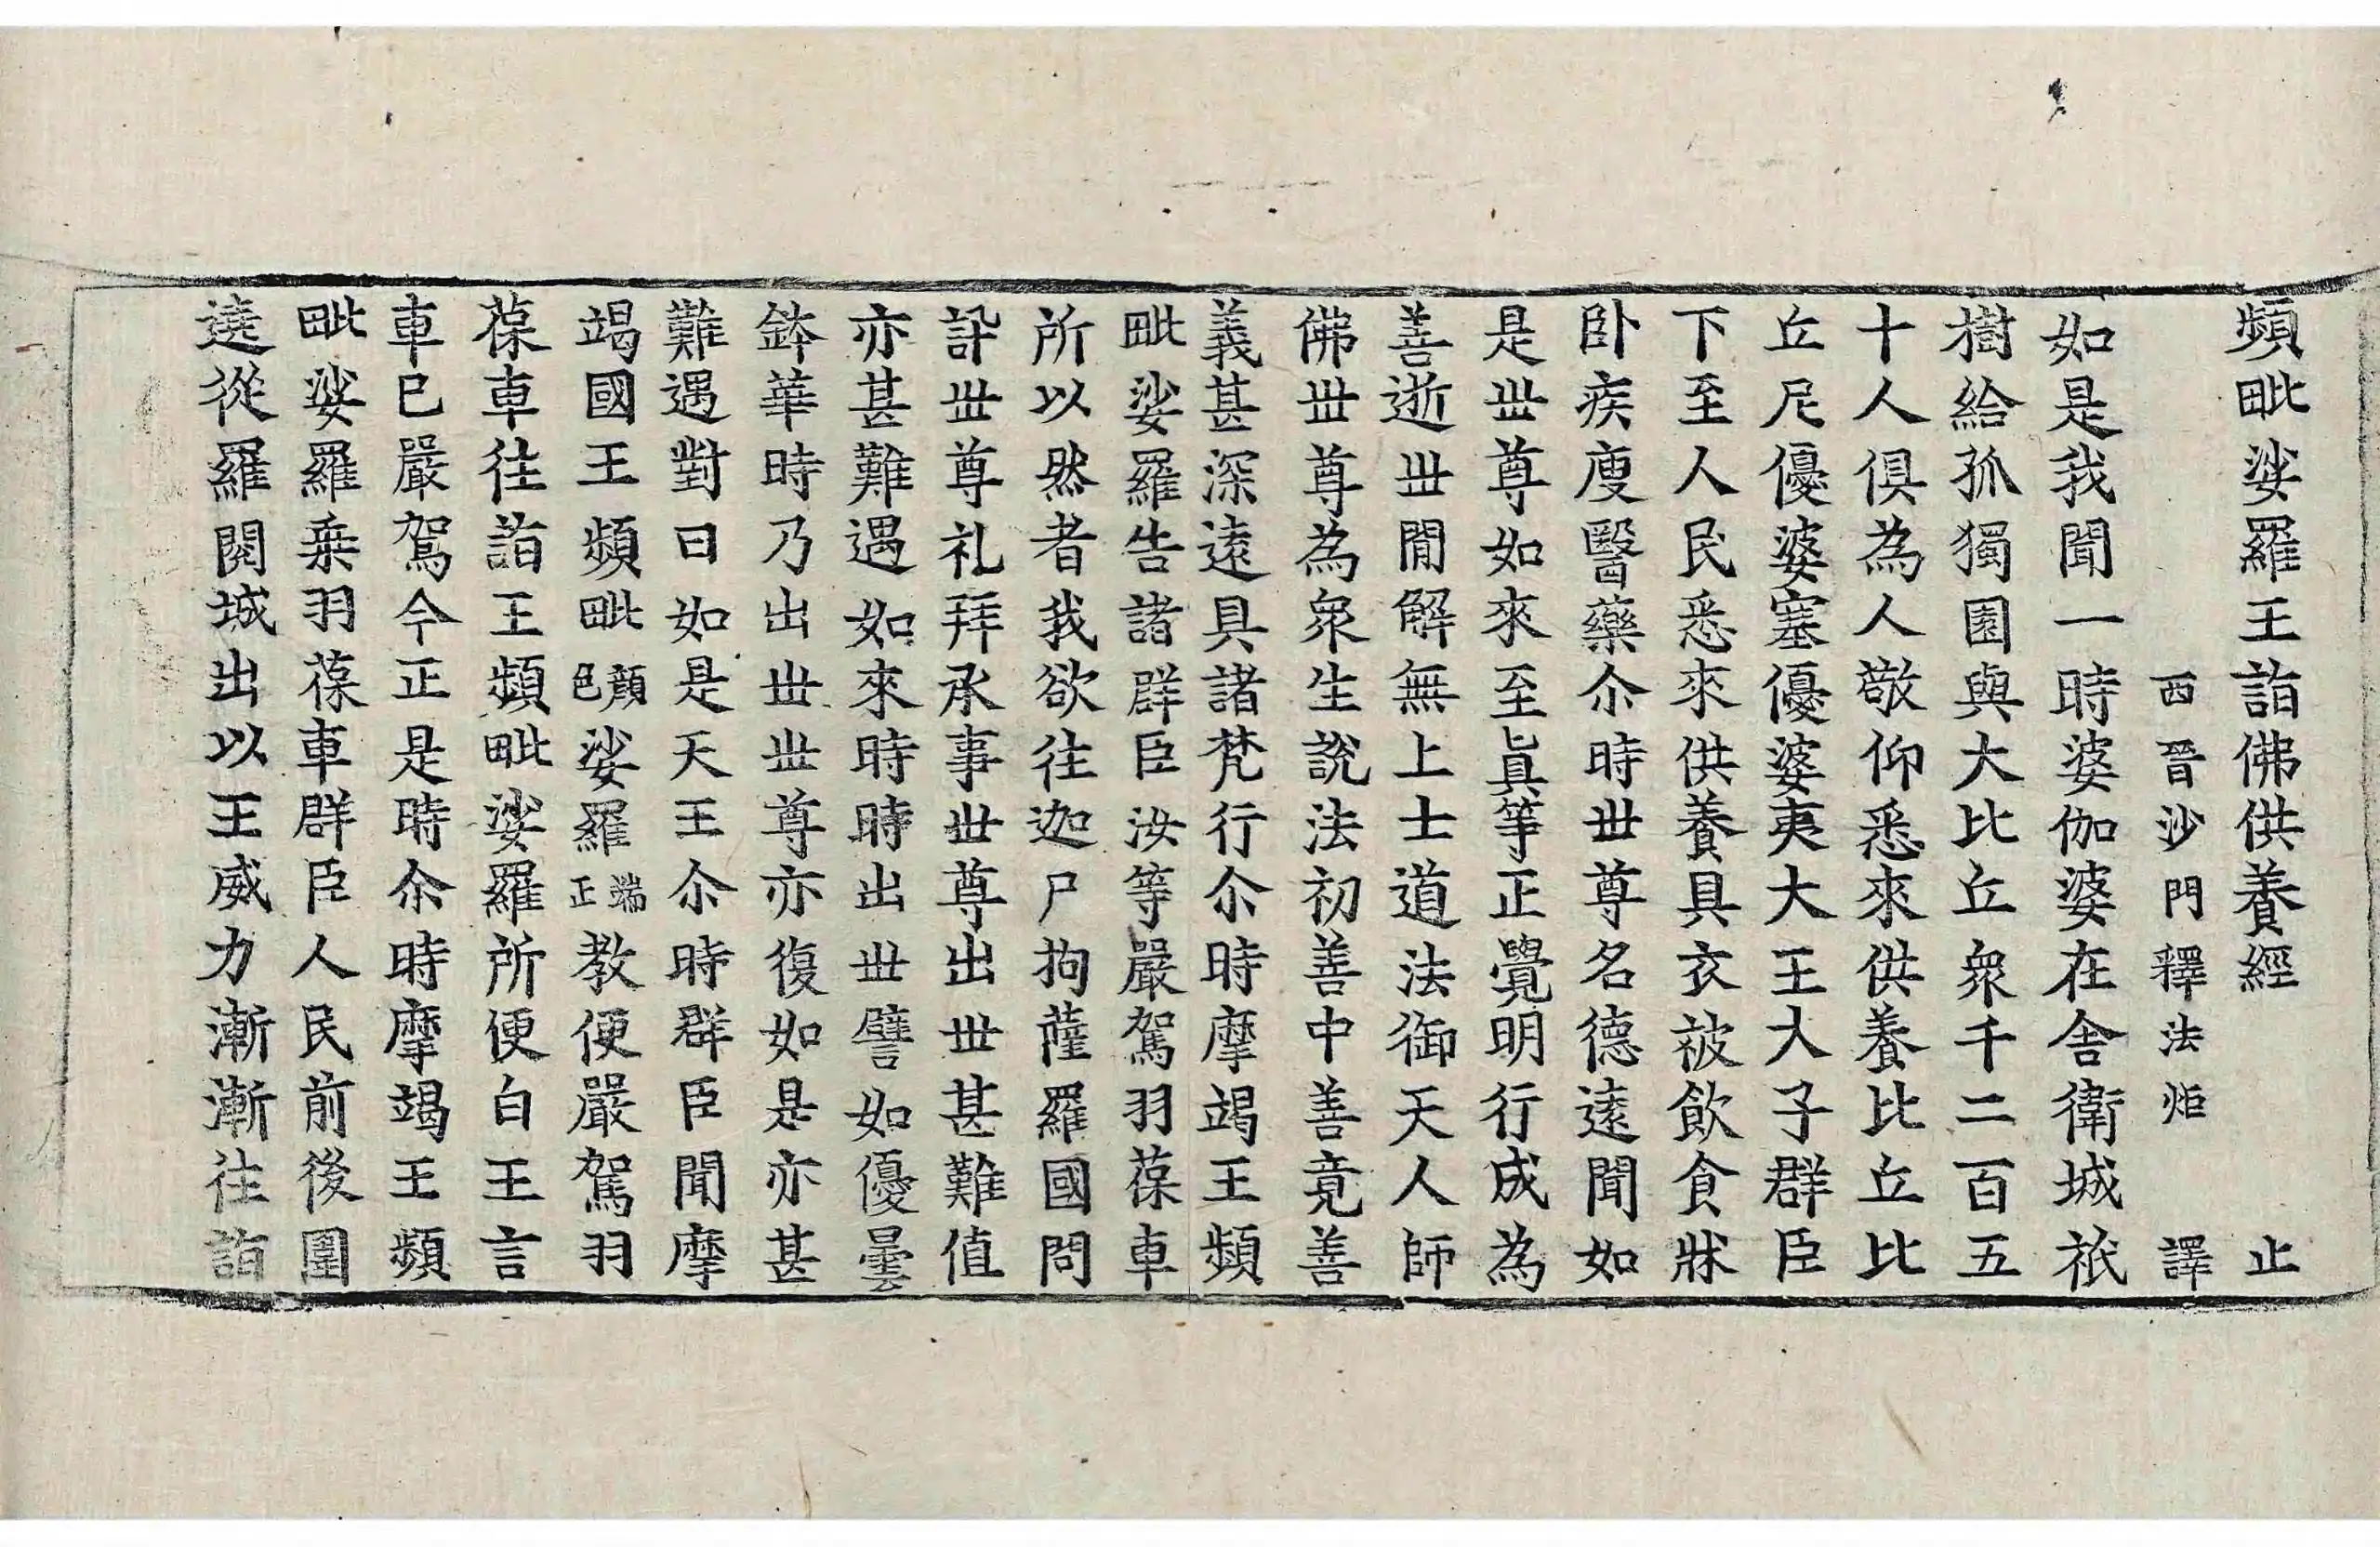 頻毗娑羅王詣佛供養經 止
西晉沙門釋法炬 譯
如是我聞一時婆伽婆在舎衛城祇
樹給孤獨園與大比丘衆千二百五
十人俱為人敬仰悉來供養比丘比
丘尼優婆塞優婆夷大王大子群臣
下至人民悉來供養具衣被飲食牀
卧疾廋醫藥尒時世尊名德遠聞如
是世尊如來至眞等正覺明行成為
善逝世閒解無上士道法御天人師
佛世尊為衆生說法初善中善竟善
義甚深遠具諸梵行尒時摩竭王頻
毗娑羅告諸群臣汝等嚴駕羽葆車
所以然者我欲往迦尸拘薩羅國問
訊世尊礼拜承事世尊出世甚難值
亦甚難遇如來時時出世譬如優曇
鉢華時乃出世世尊亦復如是亦甚
難遇對曰如是天王尒時群臣聞摩
竭國王頻毗顏色娑羅端正教便嚴駕羽
葆車往詣王頻毗娑羅所便白王言
車已嚴駕今正是時尒時摩竭王頻
毗娑羅乗羽葆車群臣人民前後圍
遶從羅閱城出以王威力漸漸往詣